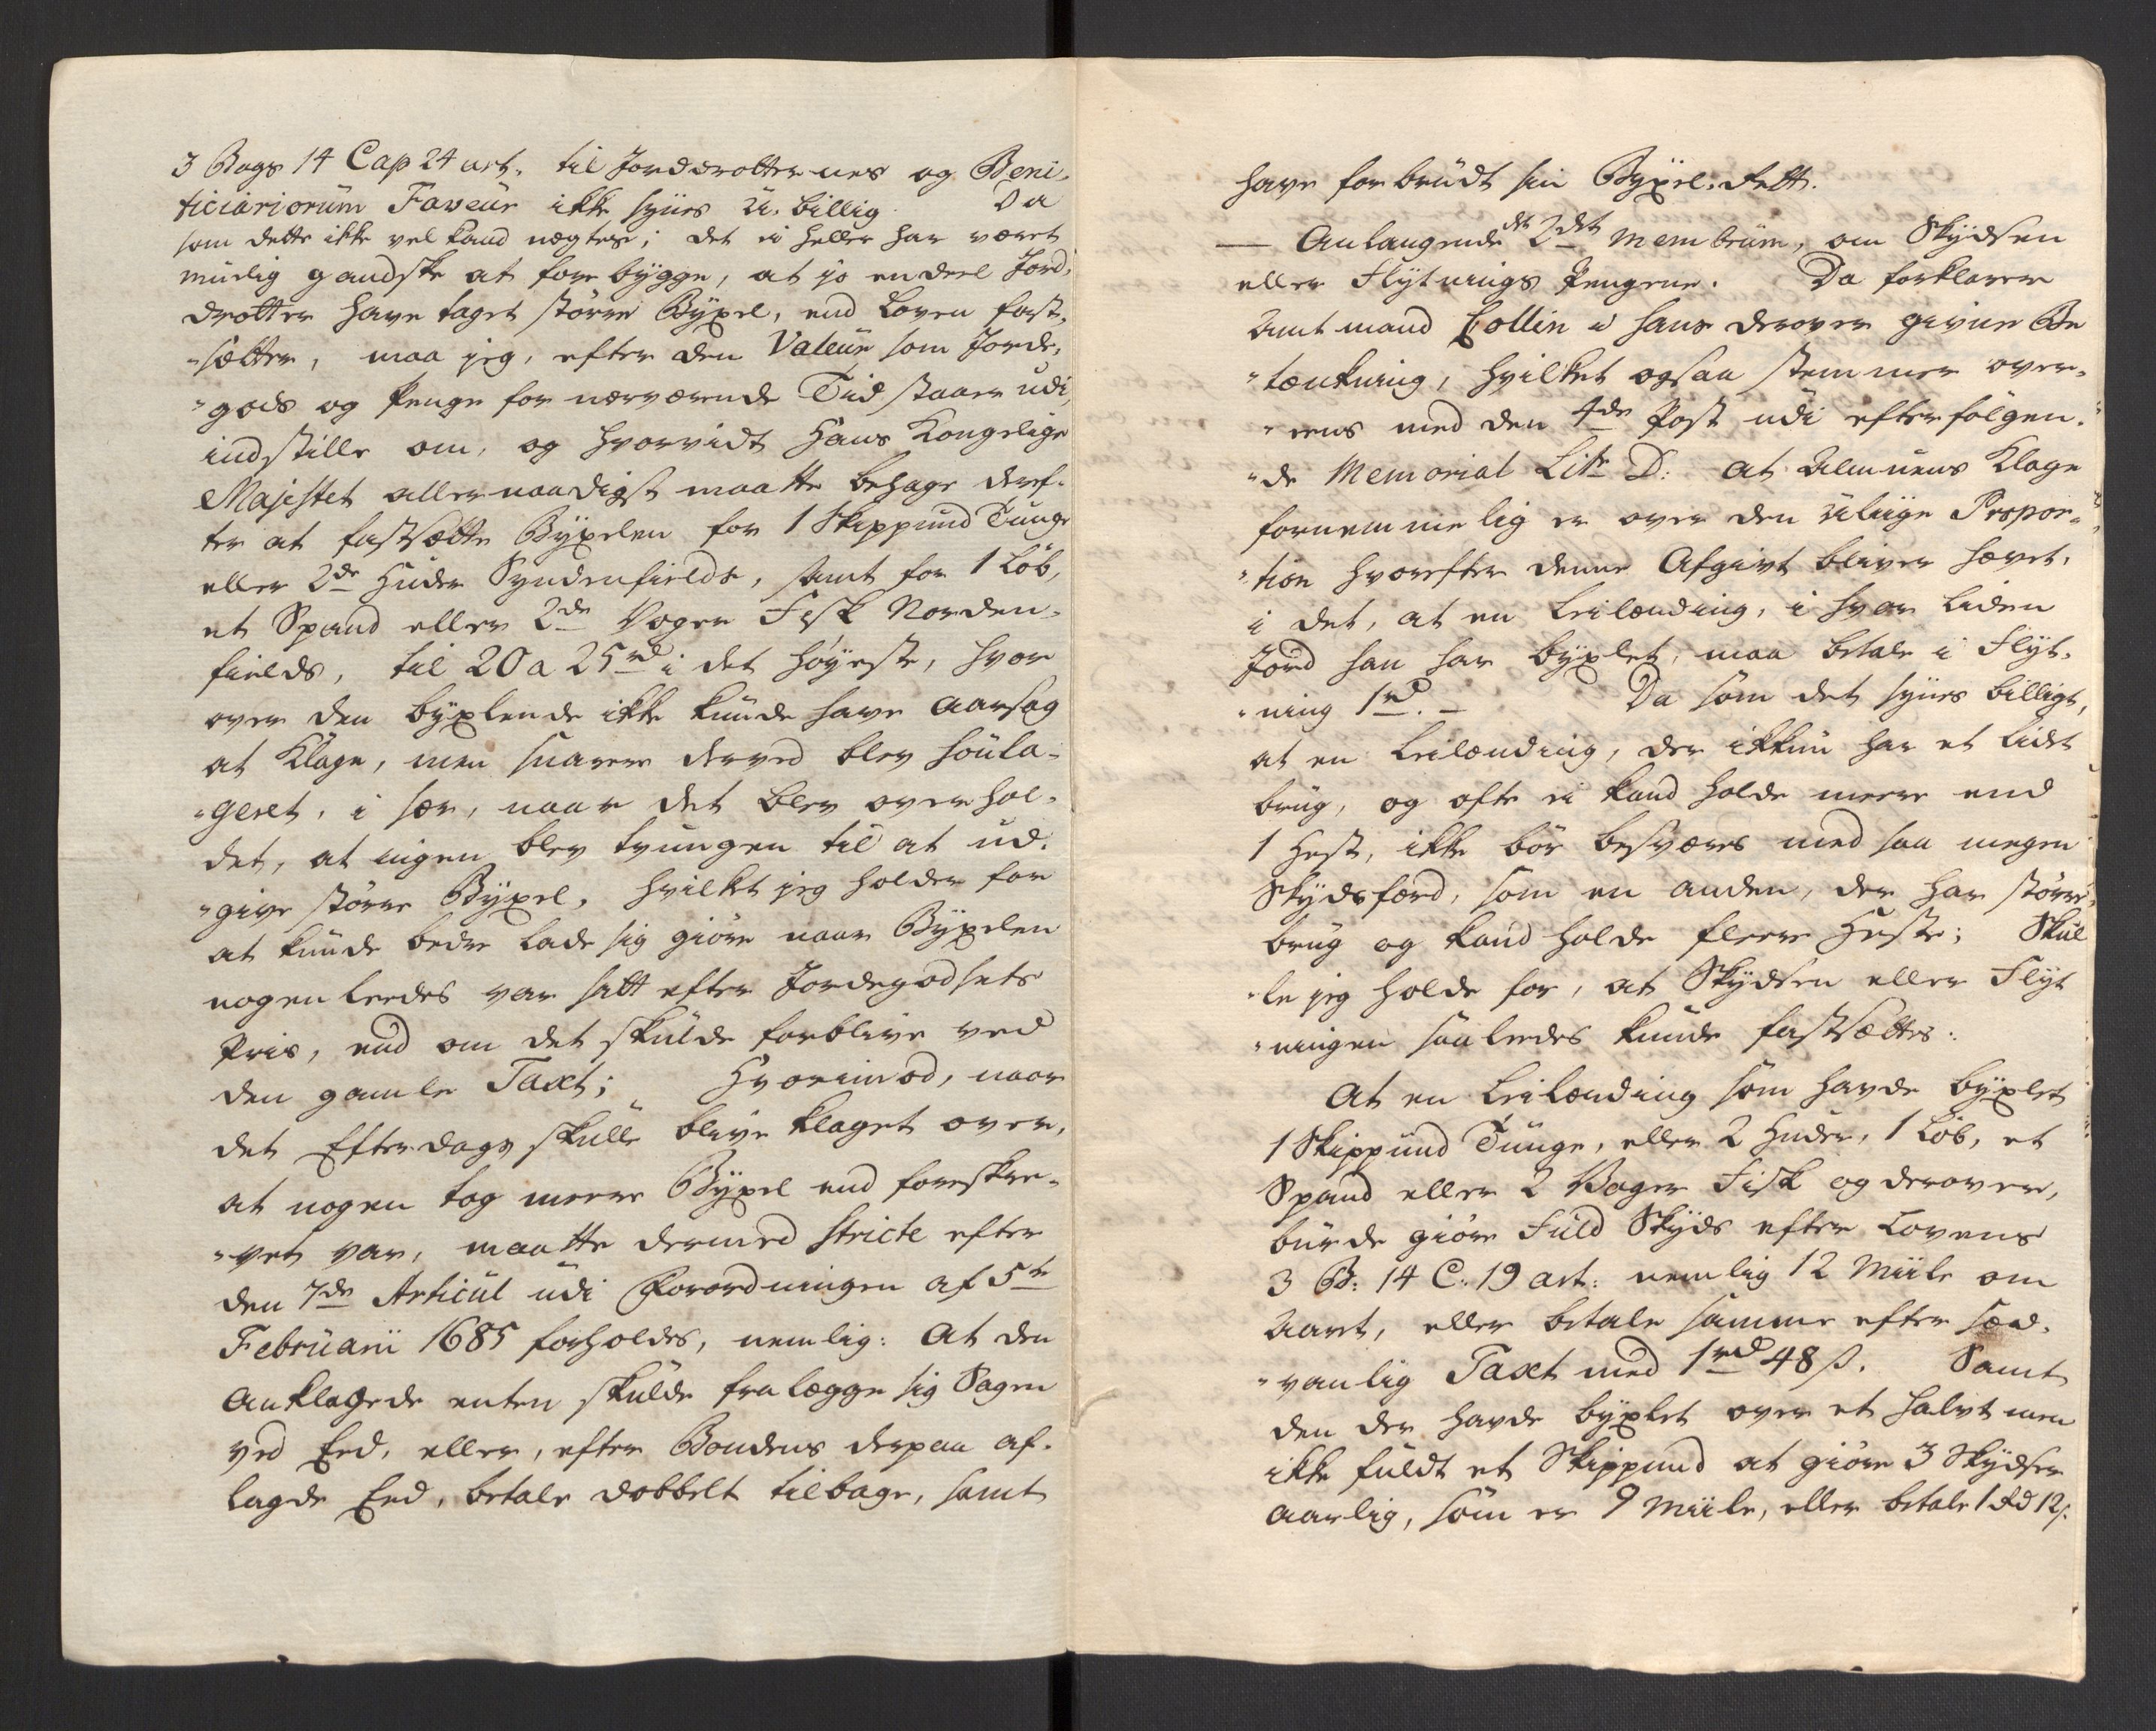 3 Bogs 14 Cap 24 art. til Jorddrotternes og Beni-
ficiariorum Faveur ikke synes u-billig. Da
som dette ikke vel kand nægtes; det ei heller har været
muelig gandske at forebygge, at jo en deel Jord-
drotter have taget större Byxel, end Loven fast-
"sætter, maa jeg, efter den Valeur som Jorde-
"gods og Penge for nærværende Tid staaer udi,
indstille om, og hvorvidt Hans Kongelige
Majestet allernaadigst maatte behage deref-
ter at fastsætte Byxelen for 1 Skippund Tunge
eller 2de Huder Syndenfields, samt for 1 Löb,
et Spand eller 2de Voger Fisk Norden-
fields, til 20 a 25 rd i det höyeste, hvor
over den byxlende ikke kunde have Aarsag
at Klage, men snarere derved blev soula-
"geret, i sær, naar det blev overhol-
det, at ingen blev tvungen til at ud-
"give större Byxel, hvilket jeg holder for
at kunde bedre lade sig giöre naar Byxelen
nogenleedes var satt efter Jordegodsets
Pris, end om det skulde forblive ved
den gamle Taxt; Hvorimod, naar
det Efterdags skulle blive klaget over,
at nogen tog meere Byxel end foreskre-
"vet var, maatte dermed stricte efter
den 7de Articul udi Forordningen af 5te
Februarii 1685 forholdes, nemlig: At den
Anklagede enten skulde fralægge sig Sagen
ved Eed, eller, efter Bondens derpaa af-
lagde Eed, betale dobbelt tilbage, samt
have forbrudt sin Byxel-Rett.
— Anlangende dt 2det Membrum, om Skydsen
eller Flytnings Pengene. Da forklarer
Amtmand Collin i hans derover givne Be
"tænkning, hvilket ogsaa stemmer over-
"eens med den 4de Post udi efterfölgen-
"de Memorial Litr D: at Almuens Klage
fornemmelig er over den uliige Propor-
"tion hvorefter denne Afgivt bliver hævet,
i det, at en Leilænding, i hvor liden
Jord han har byxlet, maa betale i Flyt-
"ning 1 rd. - Da som det synes billigt,
at en Leilænding, der ikkun har et lidet
brug, og ofte ei kand holde meere end
1 Hest, ikke bör besværes med saa megen
Skydsfærd, som en anden, der har större
brug og kand holde fleere Heste; Skul
"le jeg holde for, at Skydsen eller Flyt
"ningen saaledes kunde fastsættes:
At en Leilænding som havde byxlet
1 Skippund Tunge, eller 2 Huder, 1 Löb, et
Spand eller 2 Voger Fisk og derover,
burde giöre Fuld Skyds efter Lovens
3 B: 14 C: 19 art: nemlig 12 Miile om
Aaret, eller betale samme efter sæd-
"vanlig Taxt med 1 rd 48 s. Samt
den der havde byxlet over et halvt men
ikke fuldt et Skippund at giöre 3 Skydser
aarlig, som er 9 Miile, eller betale 1 Rd 12 s.